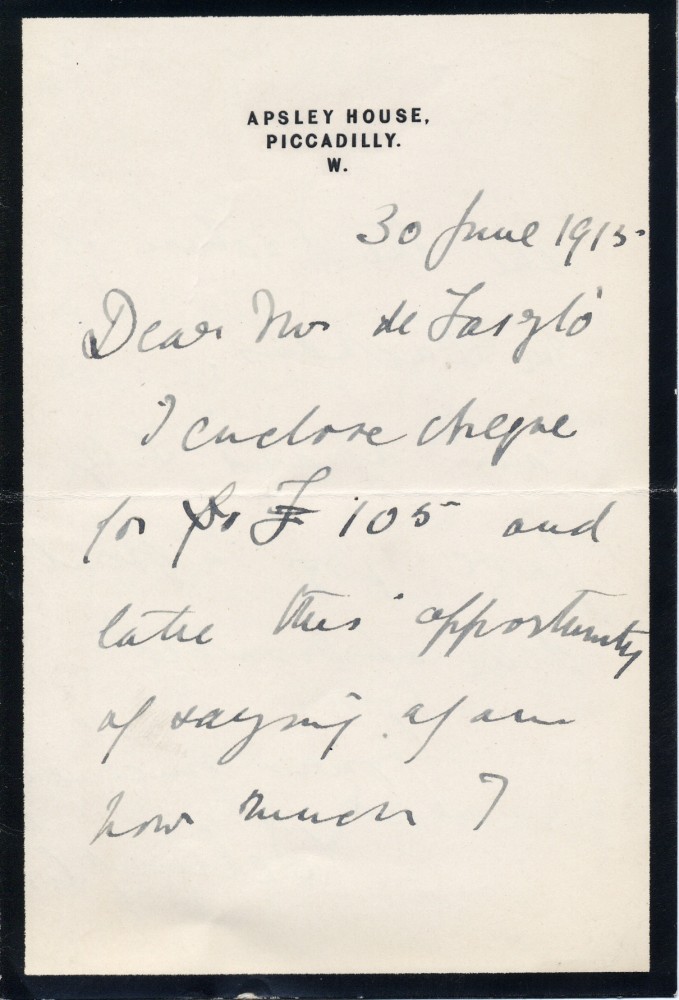 APSLEY HOUSE,
PICCADILLY.
W.
30 June 1915
Dear Mr de László
I enclose cheque
for £ 105 and
take this opportunity
of saying again
how much I